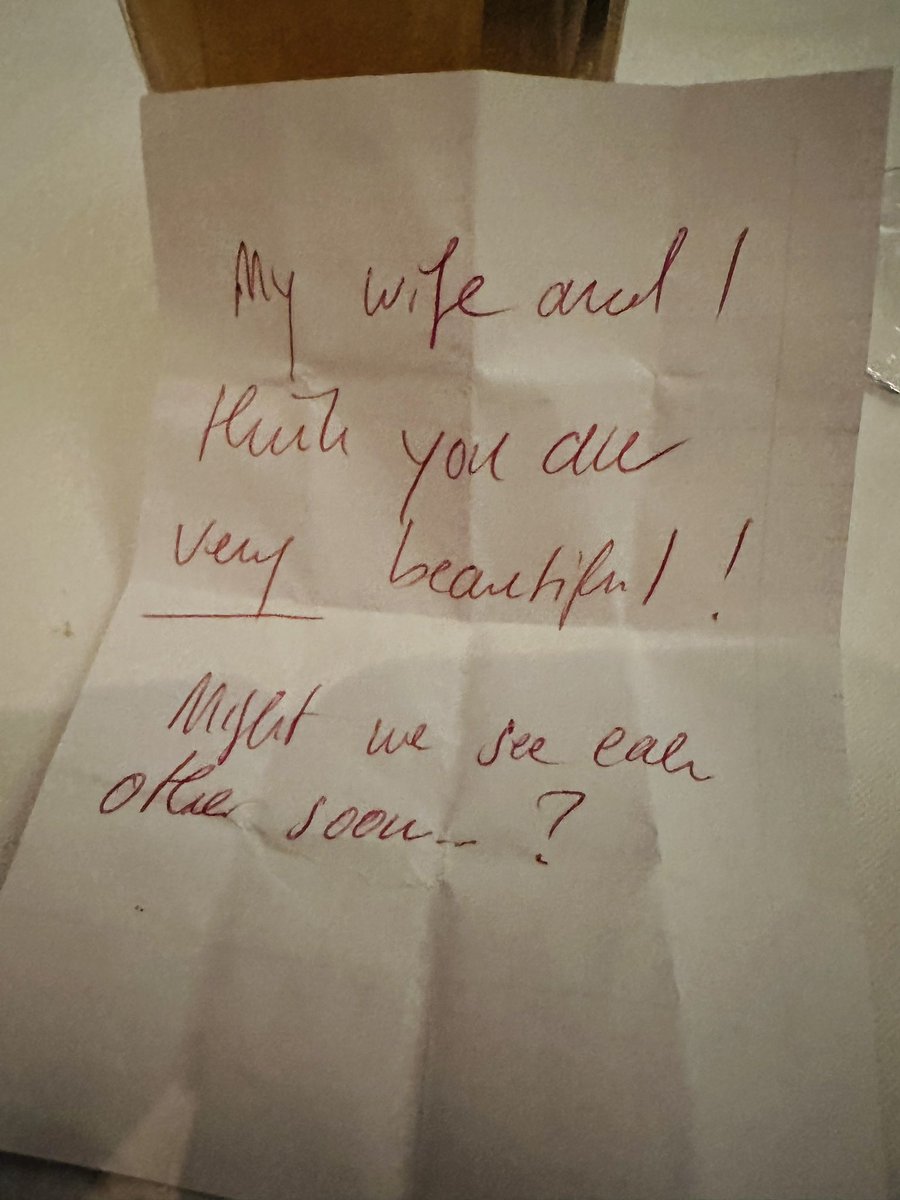 My wife and I
think you are
very beautiful!
Might we see each
other soon... ?